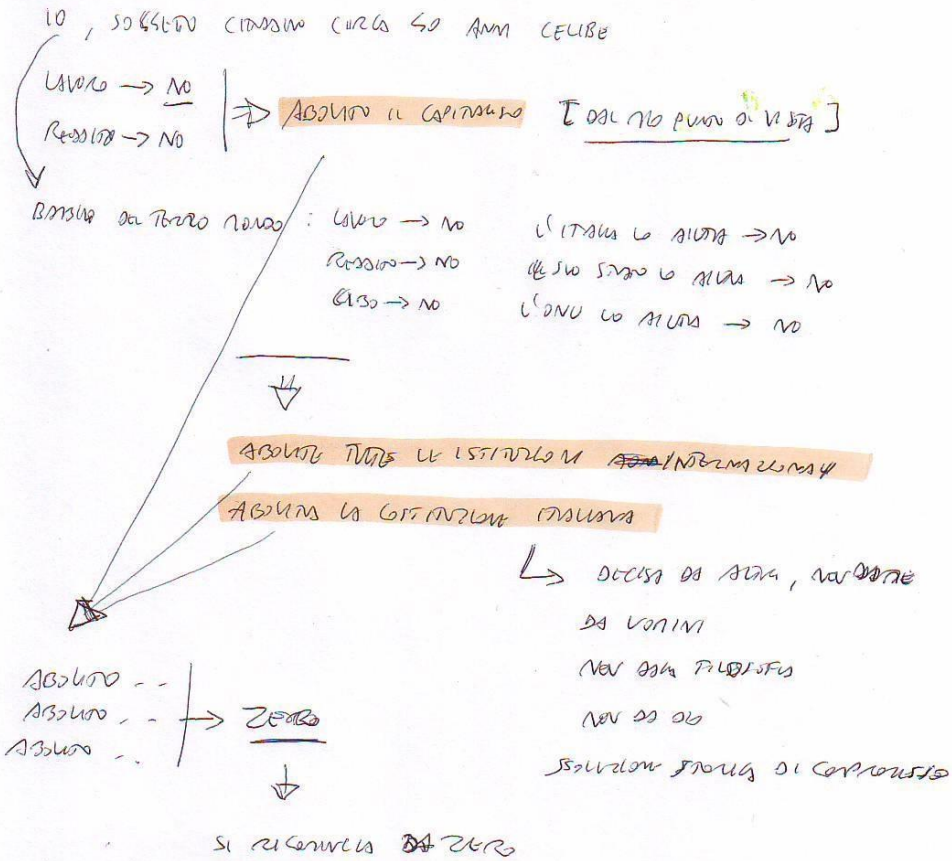 IO, SOGGETTO CITTADINO CIRCA 50 ANNI CELIBE
LAVORO → NO
REDDITO → NO
⇒ ABOLITO IL CAPITALISMO [DAL MIO PUNTO DI VISTA]
BAMBINO DEL TERZO MONDO: LAVORO → NO
REDDITO → NO
CIBO → NO
L'ITALIA LO AIUTA → NO
IL SUO STATO LO AIUTA → NO
L'ONU LO AIUTA → NO
ABOLITE TUTTE LE ISTITUZIONI INTERNAZIONALI
ABOLITA LA COSTITUZIONE ITALIANA
↳ DECISA DA ALTRI, NON DA ME
DA UOMINI
NON DALLA FILOSOFIA
NON DA DIO
SOLUZIONE STORICA DI COMPROMESSO
ABOLITO ..
ABOLITO ..
ABOLITO ..
→ ZERO
SI RICOMINCIA DA ZERO